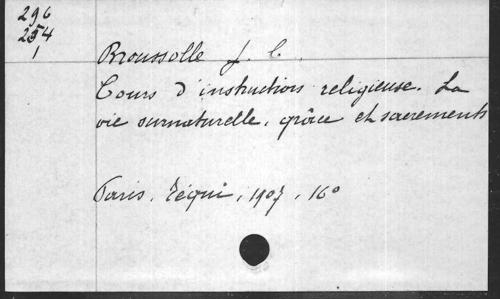 296
254
1
Broussolle J. C.
Cours d'instruction religieuse. La
vie surnaturelle, grâce et sacrements
Paris, Téqui, 1907, 16°